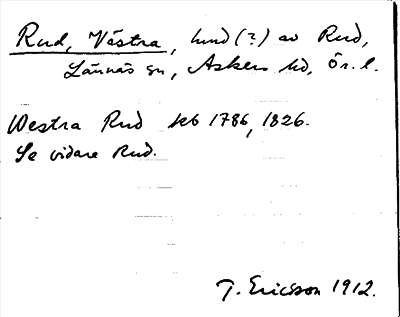 Rud, Västra, lund (?) av Rud,
Lännäs sn, Askers hd, Ör. l.
Westra Rud kb 1786, 1826.
Se vidare Rud.
T. Ericsson 1912.